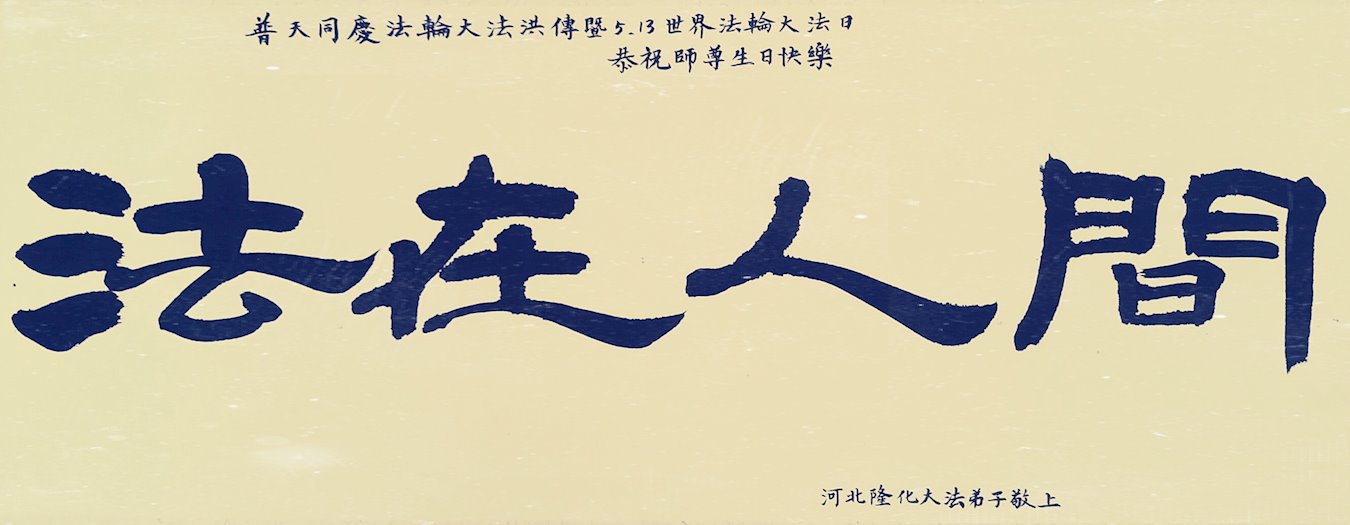 普天同慶法輪大法洪傳暨5.13世界法輪大法日
恭祝師尊生日快樂
法在人間
河北隆化大法弟子敬上